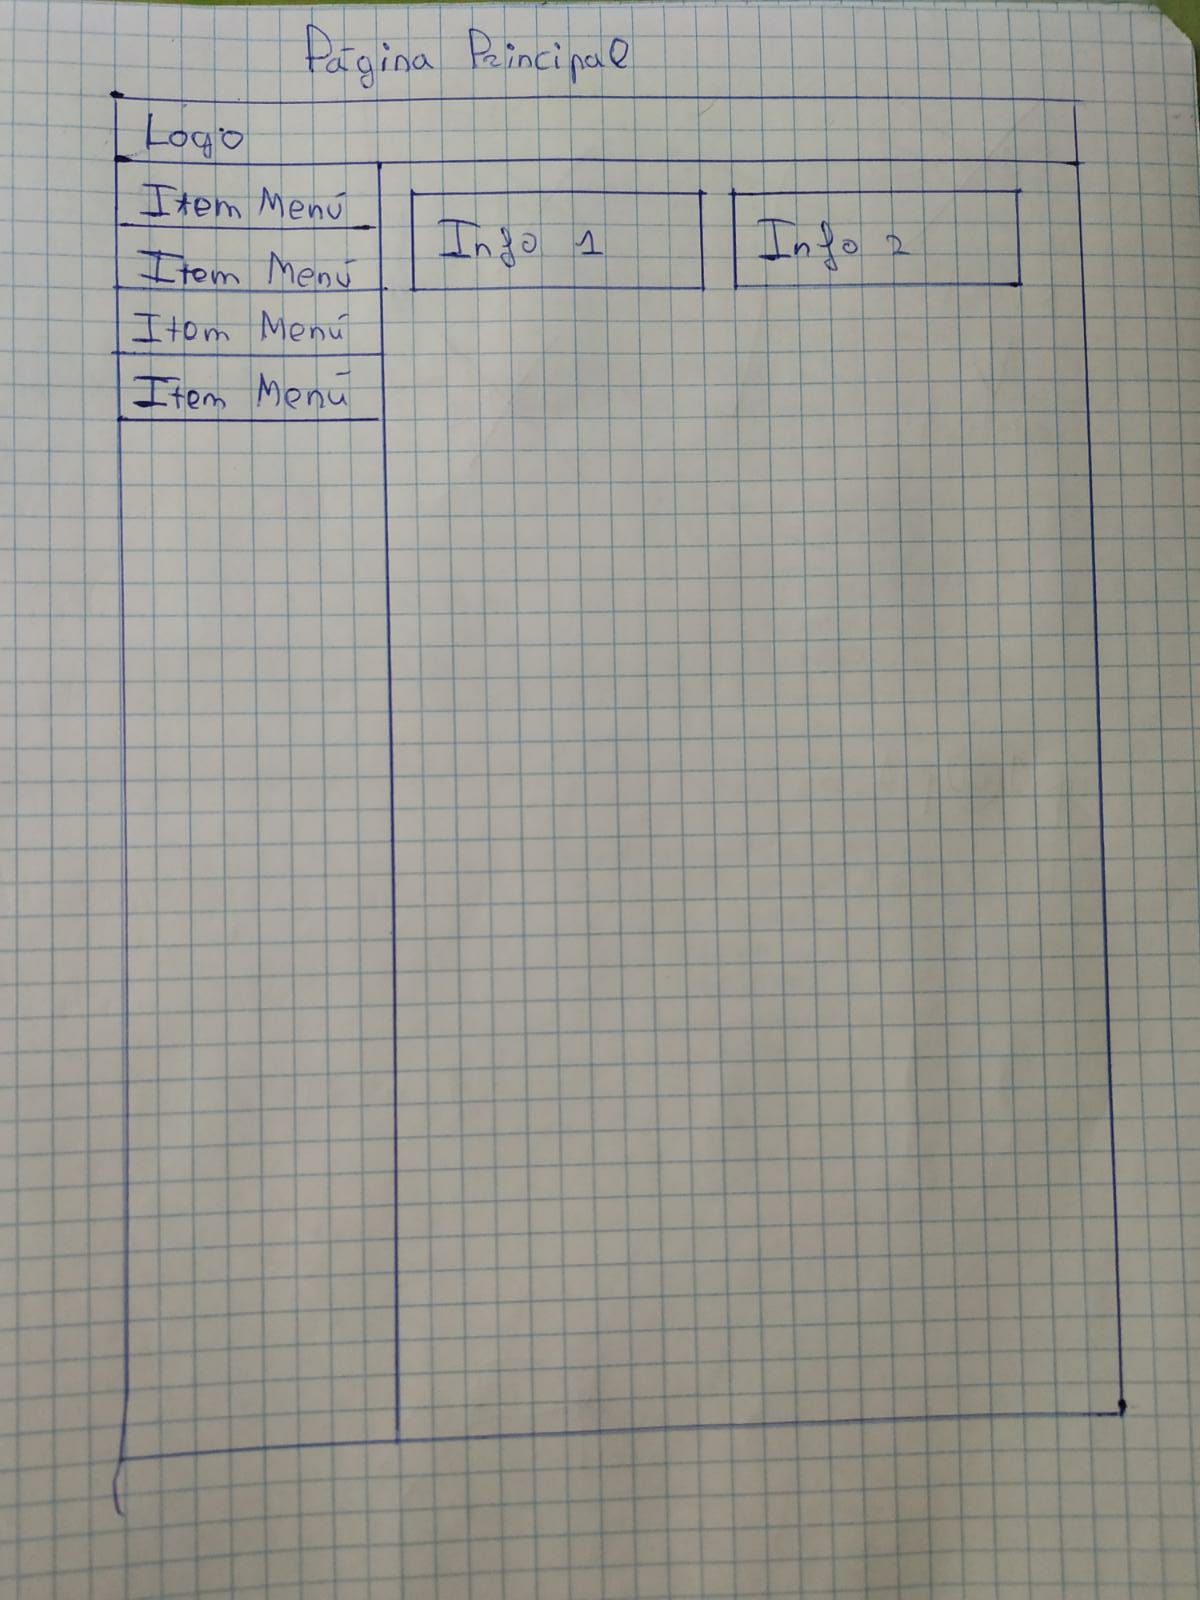 Página Principal
Logo
Item Menú
Item Menú
Item Menú
Item Menú
Info 1
Info 2